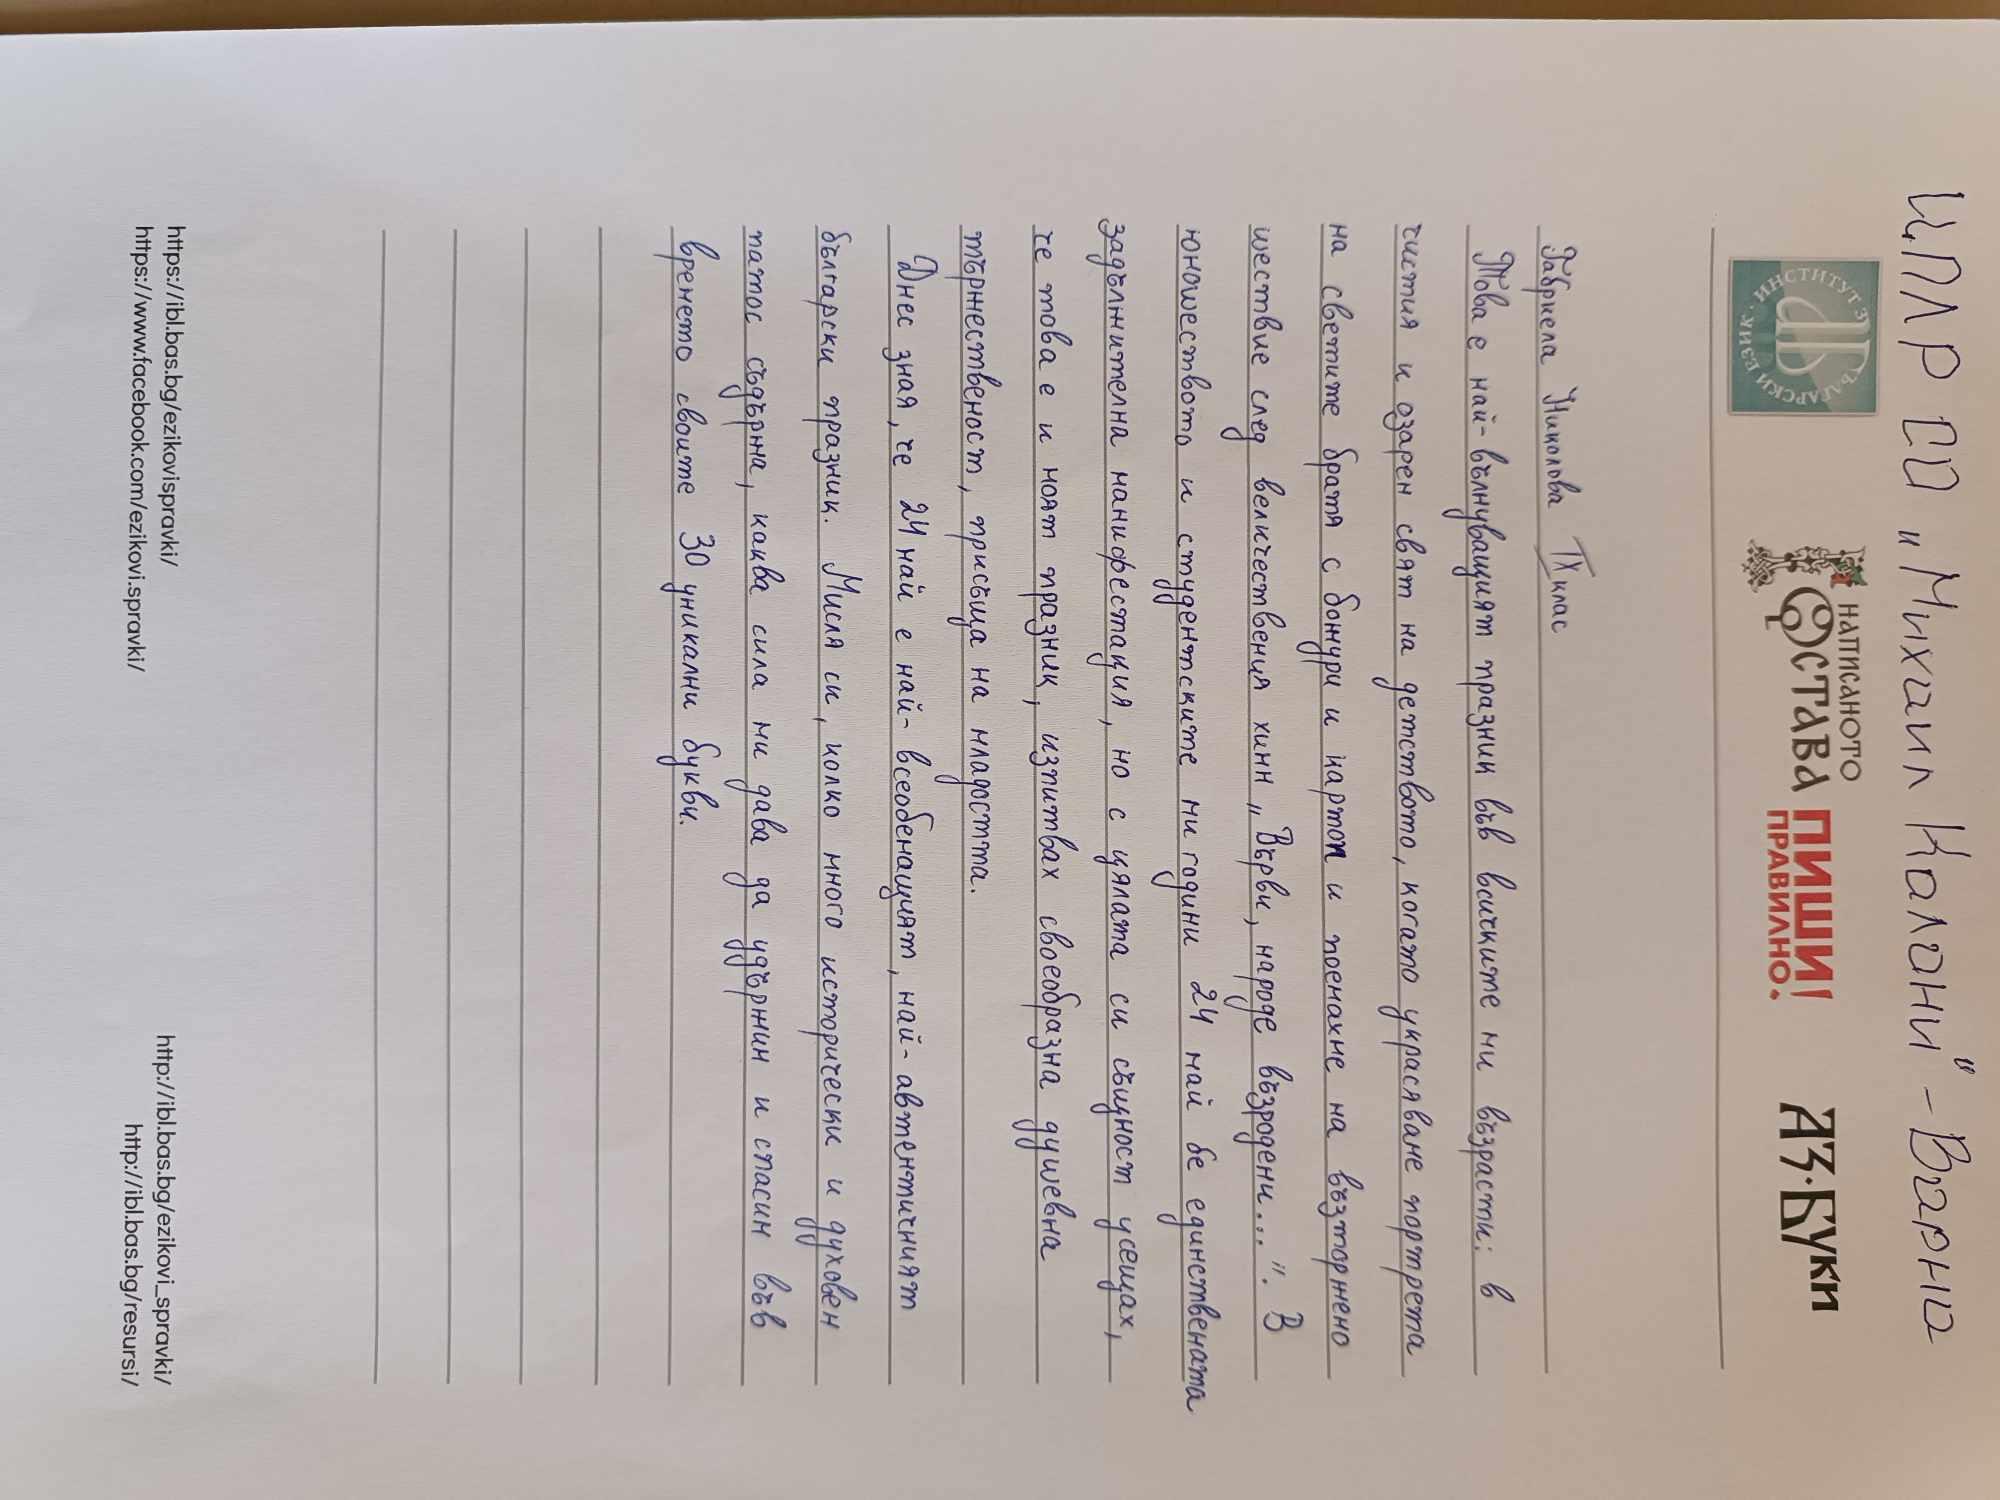 ЦПЛР СО и Михаил Колони" - Варна
ИНСТИТУТ ЗА БЪЛГАРСКИ ЕЗИК
НАПИСАНОТО
ОСТАВА
ПИШИ!
ПРАВИЛНО.
АЗ·БУКИ
Габриела Николова IX клас
Това е най-вълнуващият празник във всичките ми възрасти: в
чистия и озарен свят на детството, когато украсяване портрета
на светите братя с божури и картон и поемахме на възторжено
шествие след величествения химн „Върви, народе възродени...". В
юношеството и студентските ми години 24 май бе единствената
задължителна манифестация, но с цялата си същност усещах,
че това е и моят празник, изпитвах своеобразна душевна
тържественост, присъща на младостта.
Днес зная, че 24 май е най-всеобемащият, най-автентичният
български празник. Мисля си, колко много исторически и духовен
патос съдържа, каква сила ми дава да удържим и спасим във
времето своите 30 уникални букви.
https://ibl.bas.bg/ezikovispravki/
https://www.facebook.com/ezikovi.spravki/
http://ibl.bas.bg/ezikovi_spravki/
http://ibl.bas.bg/resursi/